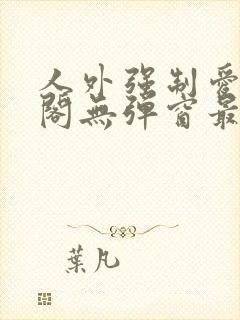 人外强制爱
阁無弹窗最
葉凡